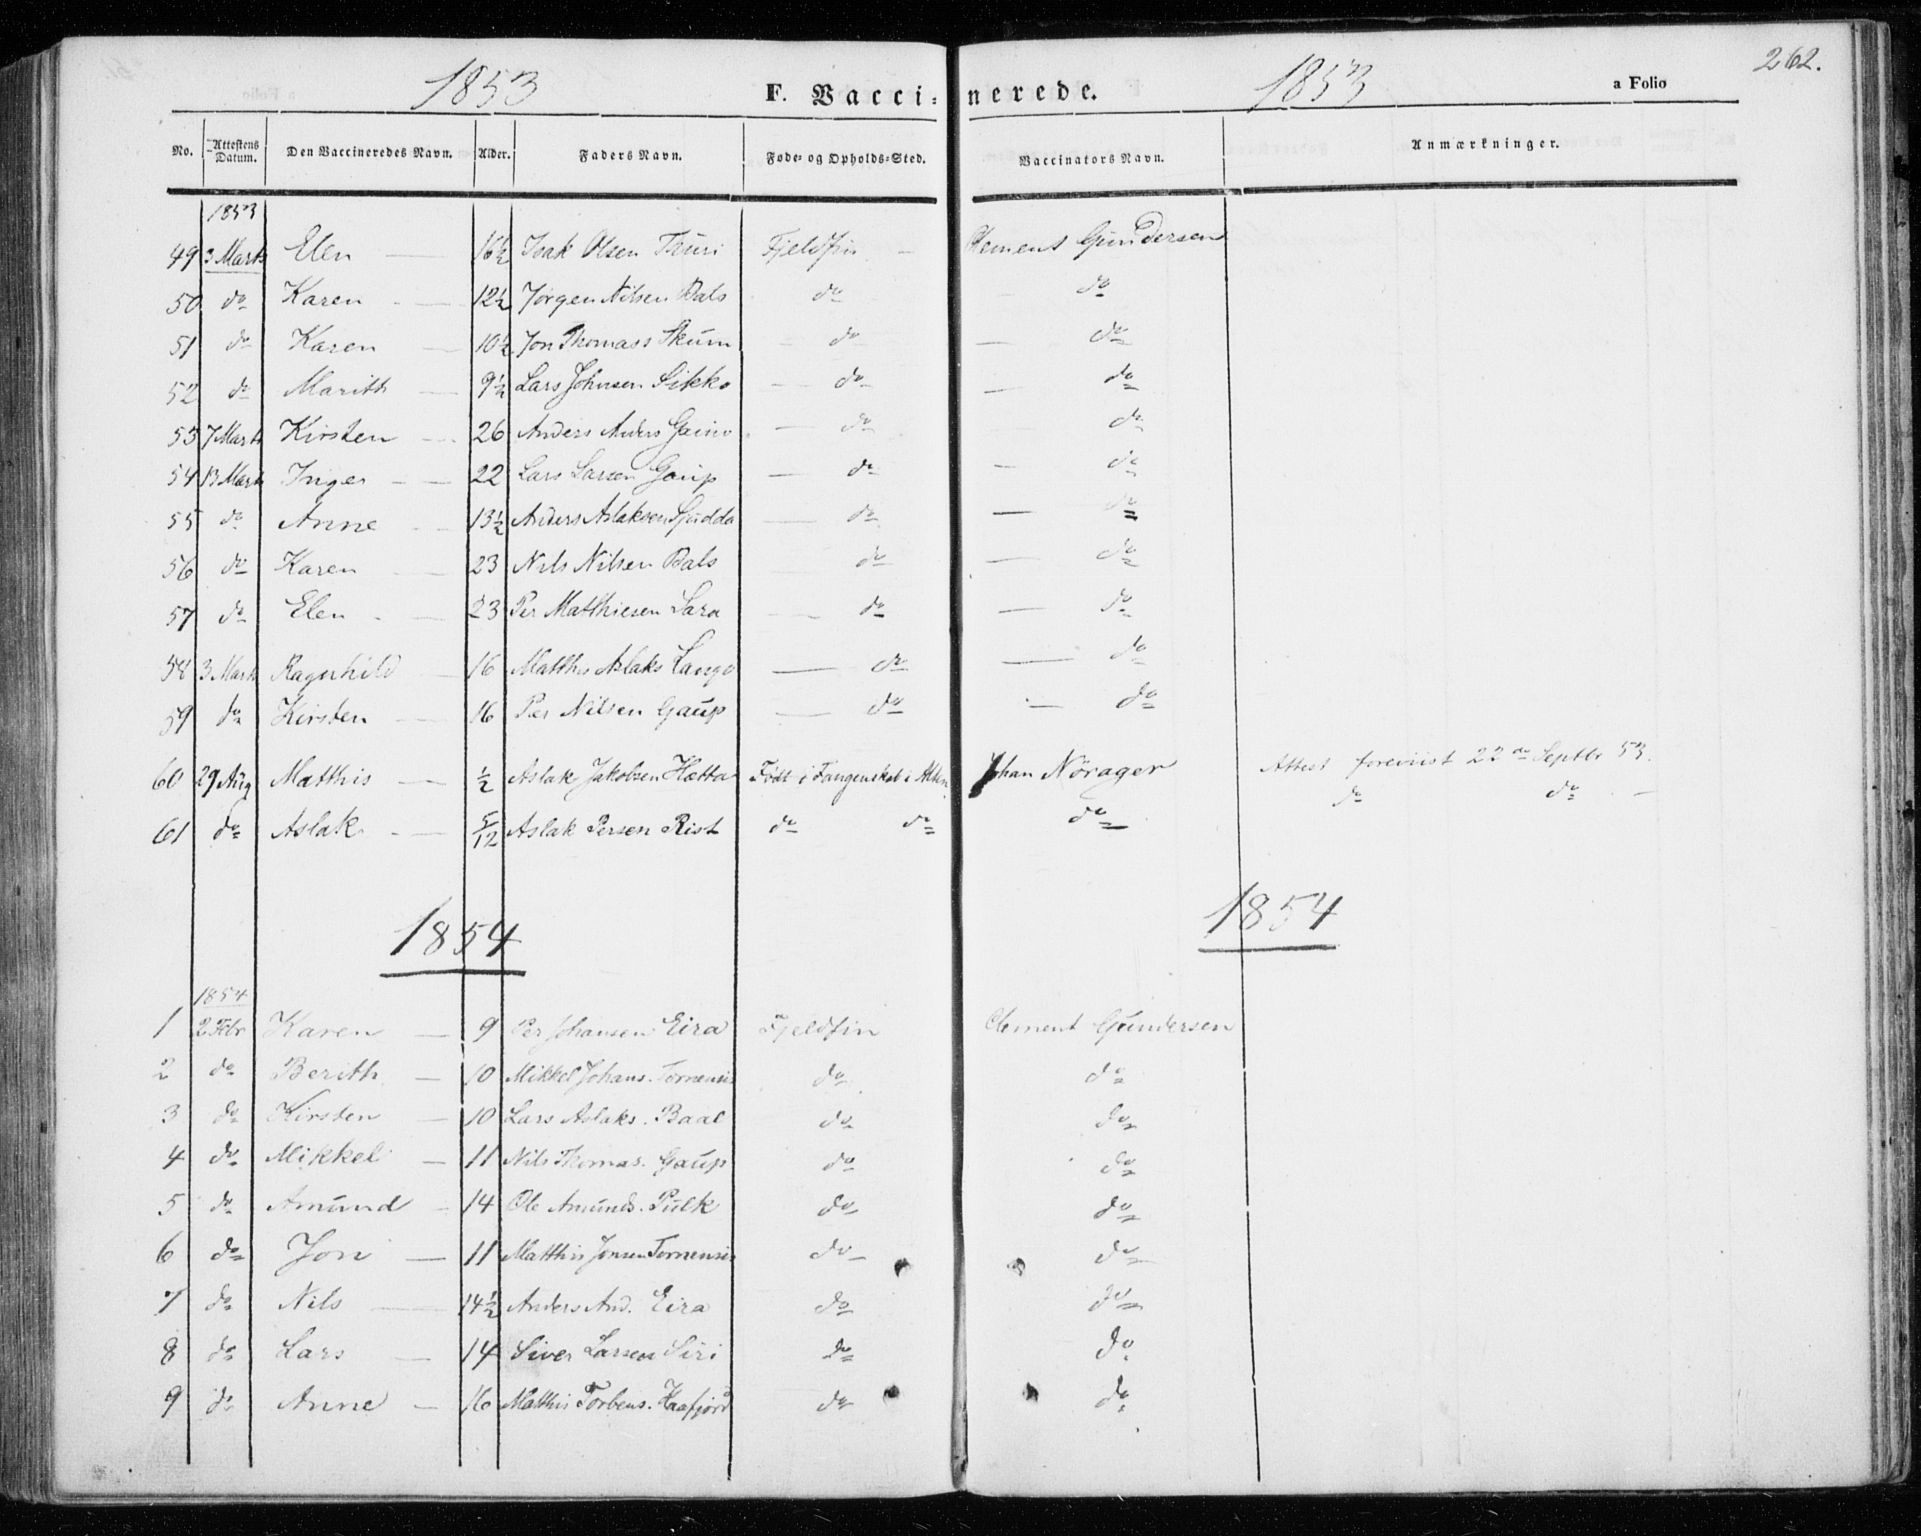 262.
1853 F. Vaccinerede. 1853 a Folio
No. Attestens Datum. Den Vaccineredes Navn. Alder. Faders Navn. Føde- og Opholds-Sted. Vaccinators Navn. Anmærkninger.
1853
49 3 Marts Elen — 16½ Isak Olsen Thuri Fjeldfin — Clement Gundersen
50 do Karen — 12½ Jørgen Nilsen Bals do — do
51 do Karen — 10½ Jon Thomass Skum — do — do
52 do Marith — 9½ Lars Johnsen Sikko — do — do
53 7 Marts Kirsten — 26 Anders Anders Gaino — do do
54 13 Marts Inger — 22 Lars Larsen Gaup — do — do
55 do Anne — 13½ Anders Aslaksen — do — do
56 do Karen — 23 Nils Nilsen Bals — do — do
57 do Elen — 23 Per Matthiesen Sara — do — do
58 3 Marts Ragnhild — 16 Matthis Aslaks — do — do
59 do Kirsten — 16 Per Nilsen Gaup — do — do
60 29 Aug Matthis — ½ Aslak Jakobsen Hætta Født i Fangenskab i Alten Johan Nörager Attest foreviist 22de Septbr 53.
61 do Aslak — 5/12 Aslak Persen Rist do do do do do —
1854 1854
1854
1 2 Febr Karen — 9 Per Johansen Eira Fjeldfin Clement Gundersen
2 do Berith — 10 Mikkel Johans. Tornensis do do
3 do Kirsten — 10 Lars Aslaks. Baal do do
4 do Mikkel — 11 Nils Thomas. Gaup do do
5 do Amund — 14 Ole Amunds. Pulk do do
6 do Jon — 11 Matthis Jonsen Tornensis do do
7 do Nils — 14½ Anders And. Eira do do
8 do Lars — 14 Siver Larsen Siri do do
9 do Anne — 16 Matthis Torbens. Kaafjord do do